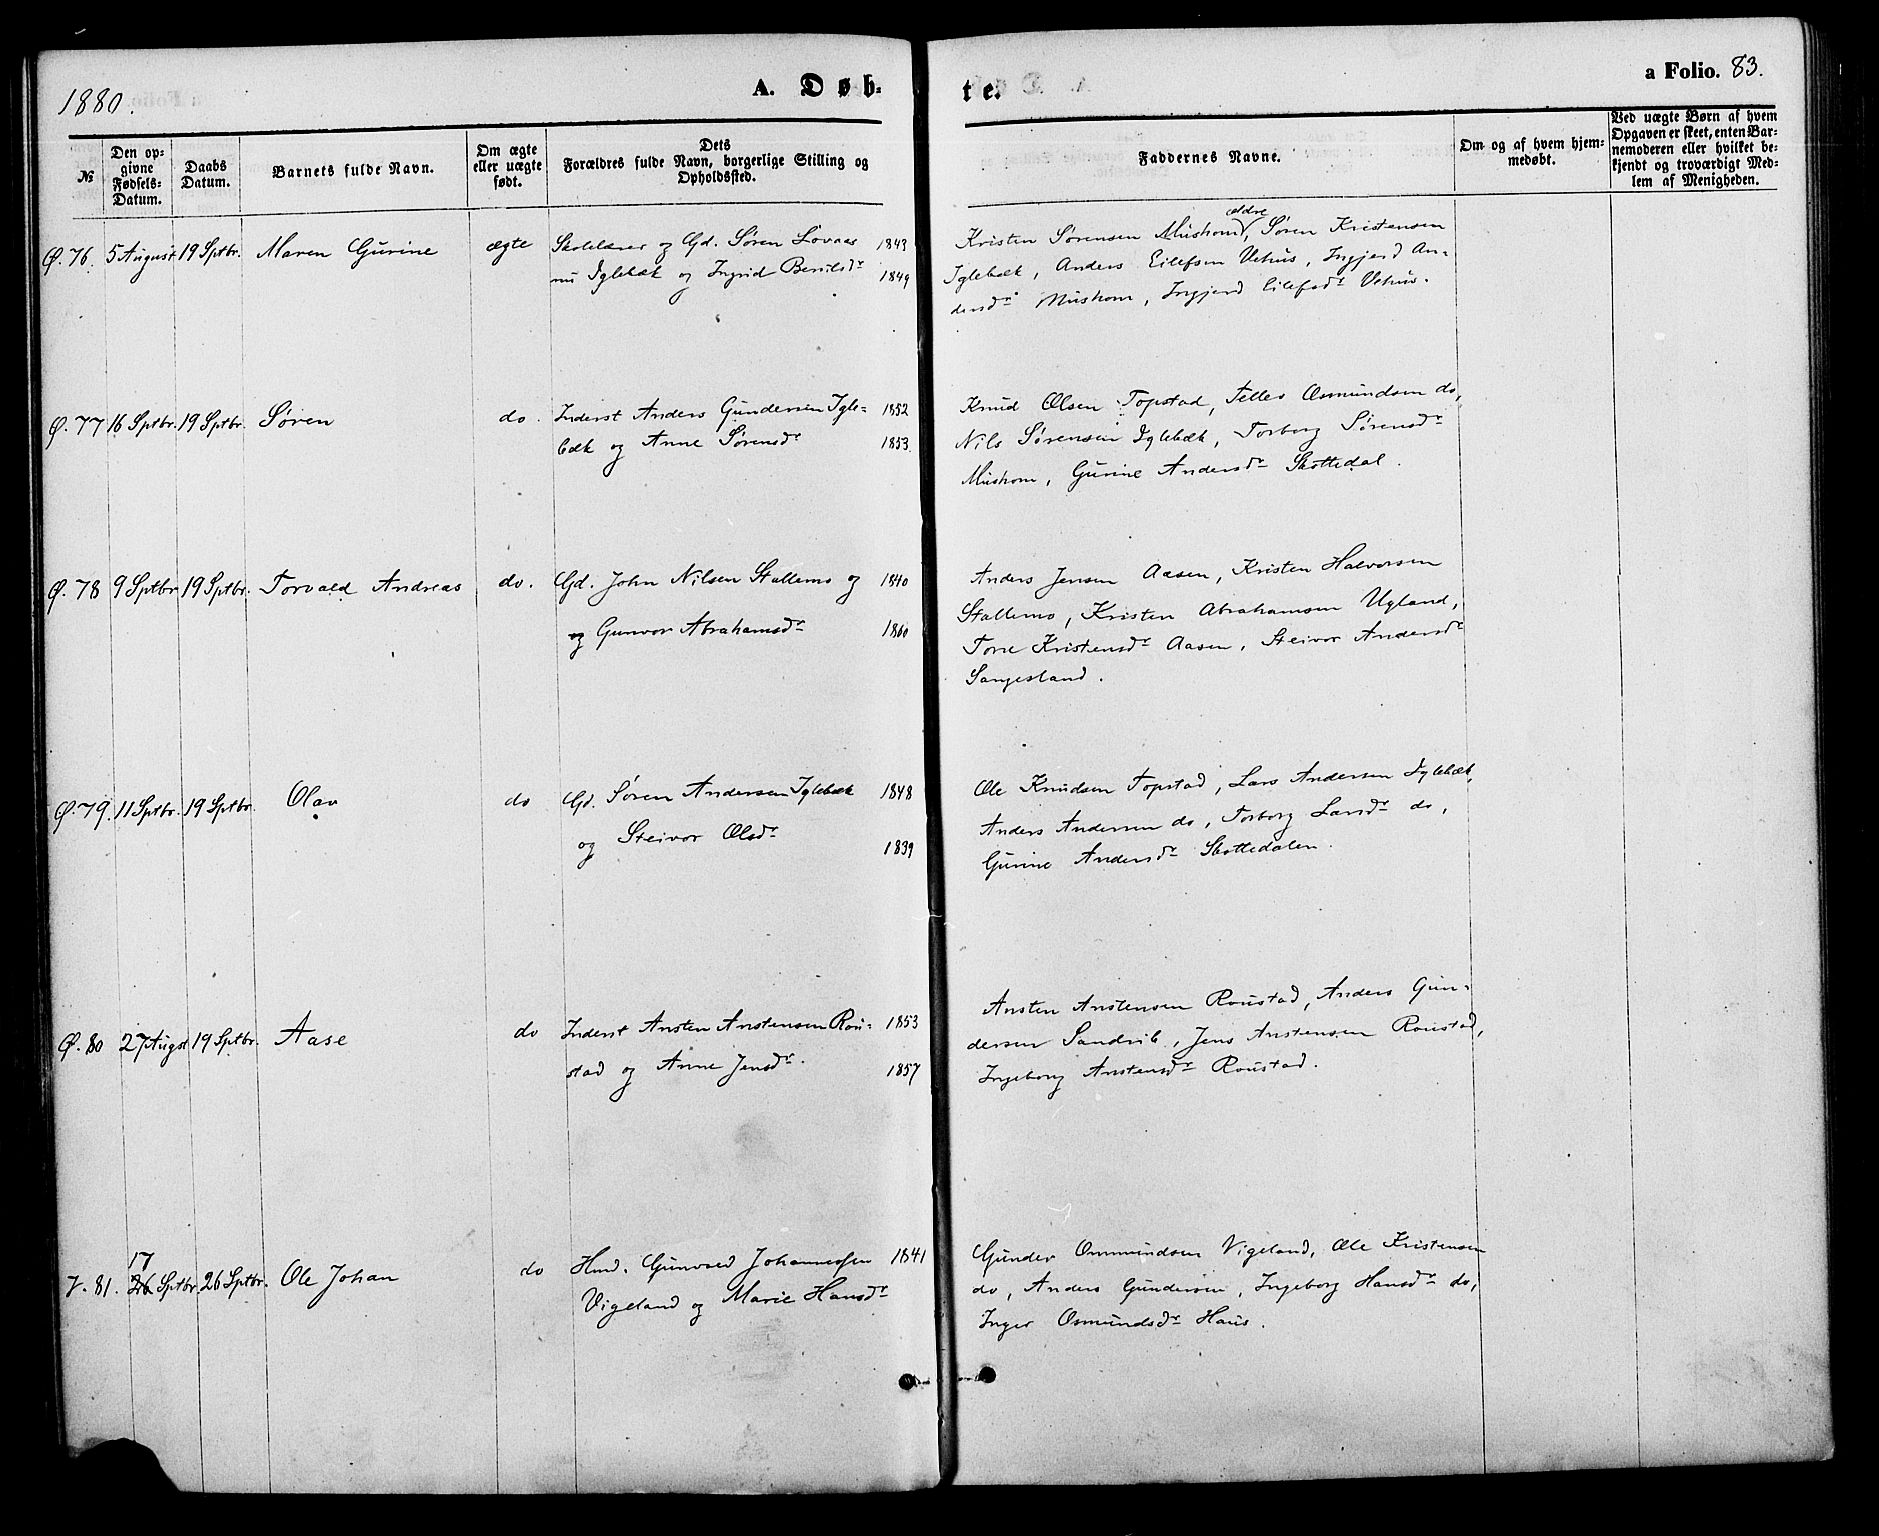 1880.
A. Døb-
te.
a Folio. 83.
№
Den op-
givne
Fødsels-
Datum.
Daabs
Datum.
Barnets fulde Navn.
Om ægte
eller uægte
født.
Dets
Forældres fulde Navn, borgerlige Stilling og
Opholdssted.
Faddernes Navne.
Om og af hvem hjem-
medøbt.
Ved uægte Børn af hvem
Opgaven er skeet, enten Bar-
nemoderen eller hvilket be-
kjendt og troværdigt Med-
lem af Menigheden.
Ø. 76. 5 August 19 Sptbr. Maren Gurine ægte Skolelærer og Gd. Søren Lovaas 1843
nu Iglebæk og Ingrid Berulsdr 1849
ældre
Kristen Sørensen Mushom, Søren Kristensen
Iglebæk, Anders Eilefsen Vehus, Ingjerd An-
dersdr Mushom, Ingjerd Eilefsdr Vehus.
Ø. 77 16 Sptbr. 19 Sptbr. Søren do. Inderst Anders Gundersen Igle- 1852
bæk og Anne Sørensdr 1853.
Knud Olsen Topstad, Tellev Osmundsen do,
Nils Sørensen Iglebæk, Torborg Sørensdr
Mushom, Gurine Andersdr Skottedal.
Ø. 78 9 Sptbr 19 Sptbr. Torvald Andreas do. Gd. John Nilsen Stallemo og 1840
og Gunvor Abrahamsdr 1860
Anders Jensen Aasen, Kristen Halvorsen
Stallemo, Kristen Abrahamsen Ugland,
Tone Kristensdr Aasen, Steivor Andersdr
Sangesland.
Ø. 79. 11 Sptbr. 19 Sptbr. Olav do Gd. Søren Andersen Iglebæk 1848
og Steivor Olsdr 1839
Ole Knudsen Topstad, Lars Andersen Iglebæk,
Anders Andersen do, Torborg Larsdr do,
Gurine Andersdr Skottedalen.
Ø. 80 27 Augst 19 Sptbr. Aase do Inderst Ansten Anstensen Rou- 1853
stad og Anne Jensdr. 1857
Ansten Anstensen Roustad, Anders Gun-
dersen Sandrib, Jens Anstensen Roustad,
Ingeborg Anstensdr Roustad.
17
V. 81. 26 Sptbr 26 Sptbr. Ole Johan do Hmd. Gunvald Johannessen 1841
Vigeland og Marie Hansdr
Gunder Ommundsen Vigeland, Ole Kristensen
do, Anders Gundersen, Ingeborg Hansdr do,
Inger Osmundsdr Haus.